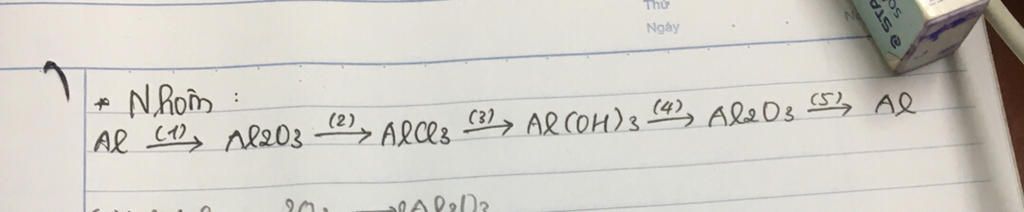 Thứ
Ngày
* Nhôm :
Al (1)→ Al2O3 (2)→ AlCl3 (3)→ Al(OH)3 (4)→ Al2O3 (5)→ Al